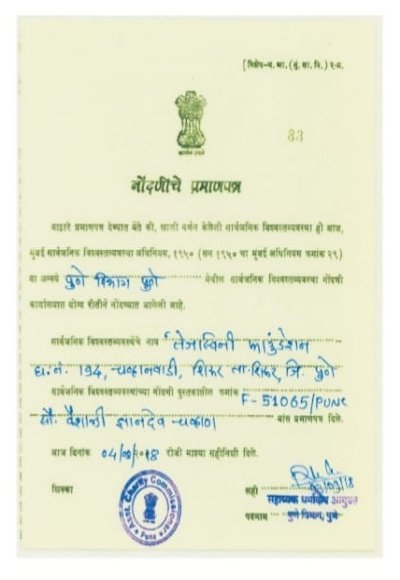 [विशेष-ध. आ. (मुं. सा. वि.) १-म.
83
नोंदणीचे प्रमाणपत्र
याद्वारे प्रमाणपत्र देण्यात येते की, खाली वर्णन केलेली सार्वजनिक विश्वस्तव्यवस्था ही आज,
मुंबई सार्वजनिक विश्वस्तव्यवस्था अधिनियम, १९५० (सन १९५० चा मुंबई अधिनियम क्रमांक २९)
या अन्वये पुणे विभाग पुणे येथील सार्वजनिक विश्वस्तव्यवस्था नोंदणी
कार्यालयात योग्य रीतीने नोंदण्यात आलेली आहे.
सार्वजनिक विश्वस्तव्यवस्थेचे नाव "तेजस्विनी फाउंडेशन
घ.नं. 194, चव्हाणवाडी, शिरूर ता-शिरूर, जि. पुणे
सार्वजनिक विश्वस्तव्यवस्थांच्या नोंदणी पुस्तकातील क्रमांक F-51065/PUNE
सौ. वैशाली ज्ञानदेव चव्हाण यांस प्रमाणपत्र दिले.
आज दिनांक रोजी माझ्या सहीनिशी दिले.
शिक्का
Asst. Charity Commissioner
Pune
सही
सहाय्यक धर्मादाय आयुक्त
पदनाम पुणे विभाग, पुणे